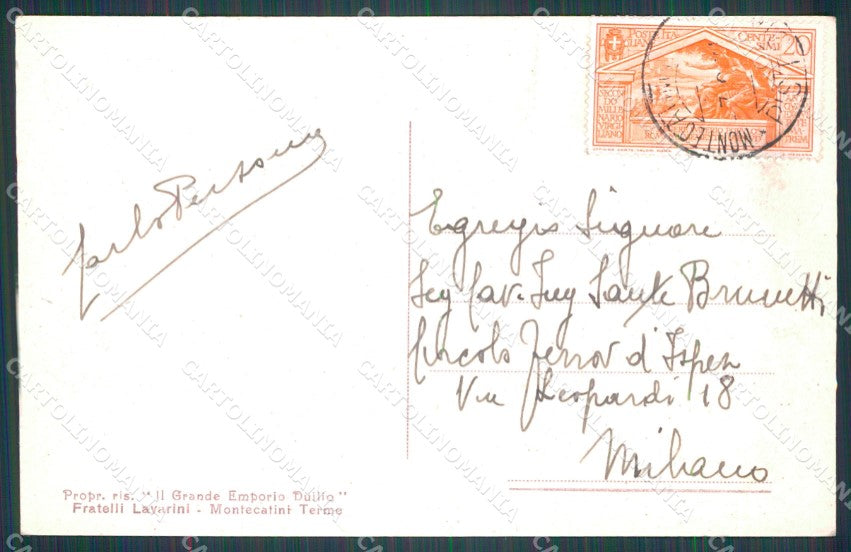 POSTE ITALIANE
CENTESIMI 20
SECONDO MILLENARIO VIRGILIANO
MONTECATINI
PISTOIA
Carlo
Egregio Signore
Cav. Ing Sante Brunetti
Circolo Ferrov d'Ispez
Via Leopardi 18
Milano
Propr. ris. "Il Grande Emporio Duilio"
Fratelli Lavarini - Montecatini Terme
CARTOLINOMANIA